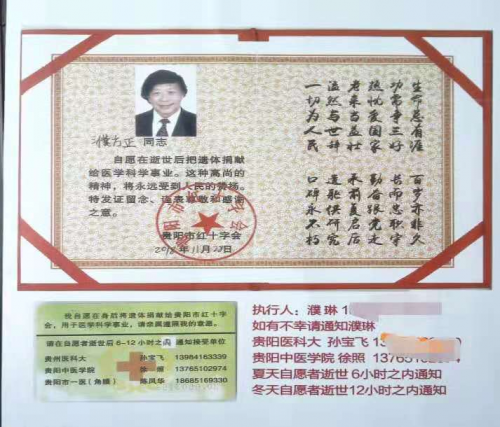 濮方正 同志
自愿在逝世后把遗体捐献
给医学科学事业。这种高尚的
精神,将永远受到人民的赞扬。
特发证留念,谨表尊敬和感谢
之意。
贵阳市红十字会
生命总有涯 百岁亦非久
功帝争三好 长而忠职守
疏忧爱国家 勤奋跟党走
老来当益壮
溘然与世辞 遗躯供研究
一切为人民 口碑永不朽
我自愿在身后将遗体捐献给贵阳市红十字
会,用于医学科学事业,请亲属遵照我的意愿。
请在自愿者逝世后6-12小时之内通知接受单位
贵州医科大 孙宝飞 13984163339
贵阳中医学院 徐照 13765102974
贵阳市一医(角膜) 陈凤华 18685169330
执行人:濮琳 1
如有不幸请通知濮琳
贵阳医科大 孙宝飞
贵阳中医学院 徐照
夏天自愿者逝世 6小时之内通知
冬天自愿者逝世12小时之内通知